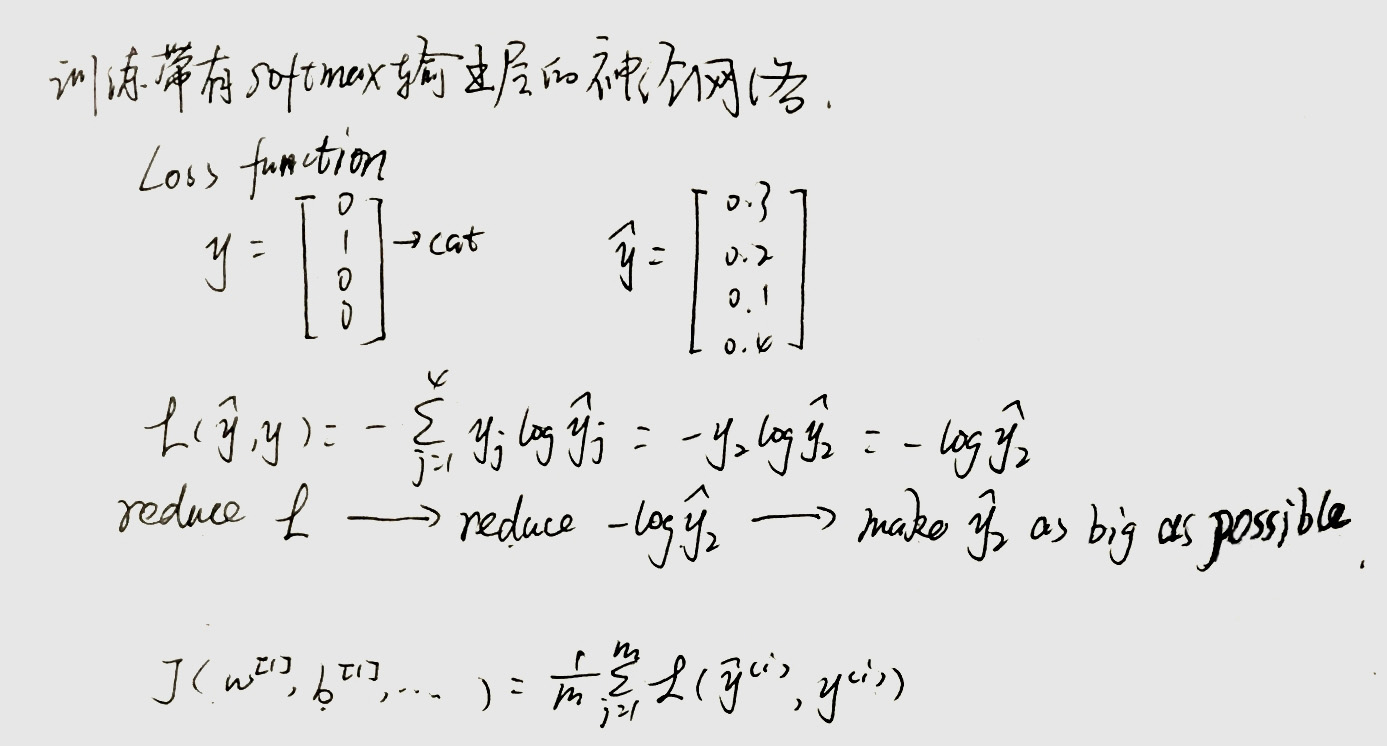 训练带有softmax输出层的神经网络.
Loss function
y = [0 1 0 0] → cat ŷ = [0.3 0.2 0.1 0.4]
L(ŷ,y) = - ∑_{j=1}^{4} y_j log ŷ_j = -y_2 log ŷ_2 = - log ŷ_2
reduce L → reduce -log ŷ_2 → make ŷ_2 as big as possible.
J(w^{[1]}, b^{[1]}, ...) = \frac{1}{m} ∑_{j=1}^{m} L(ŷ^{(i)}, y^{(i)})